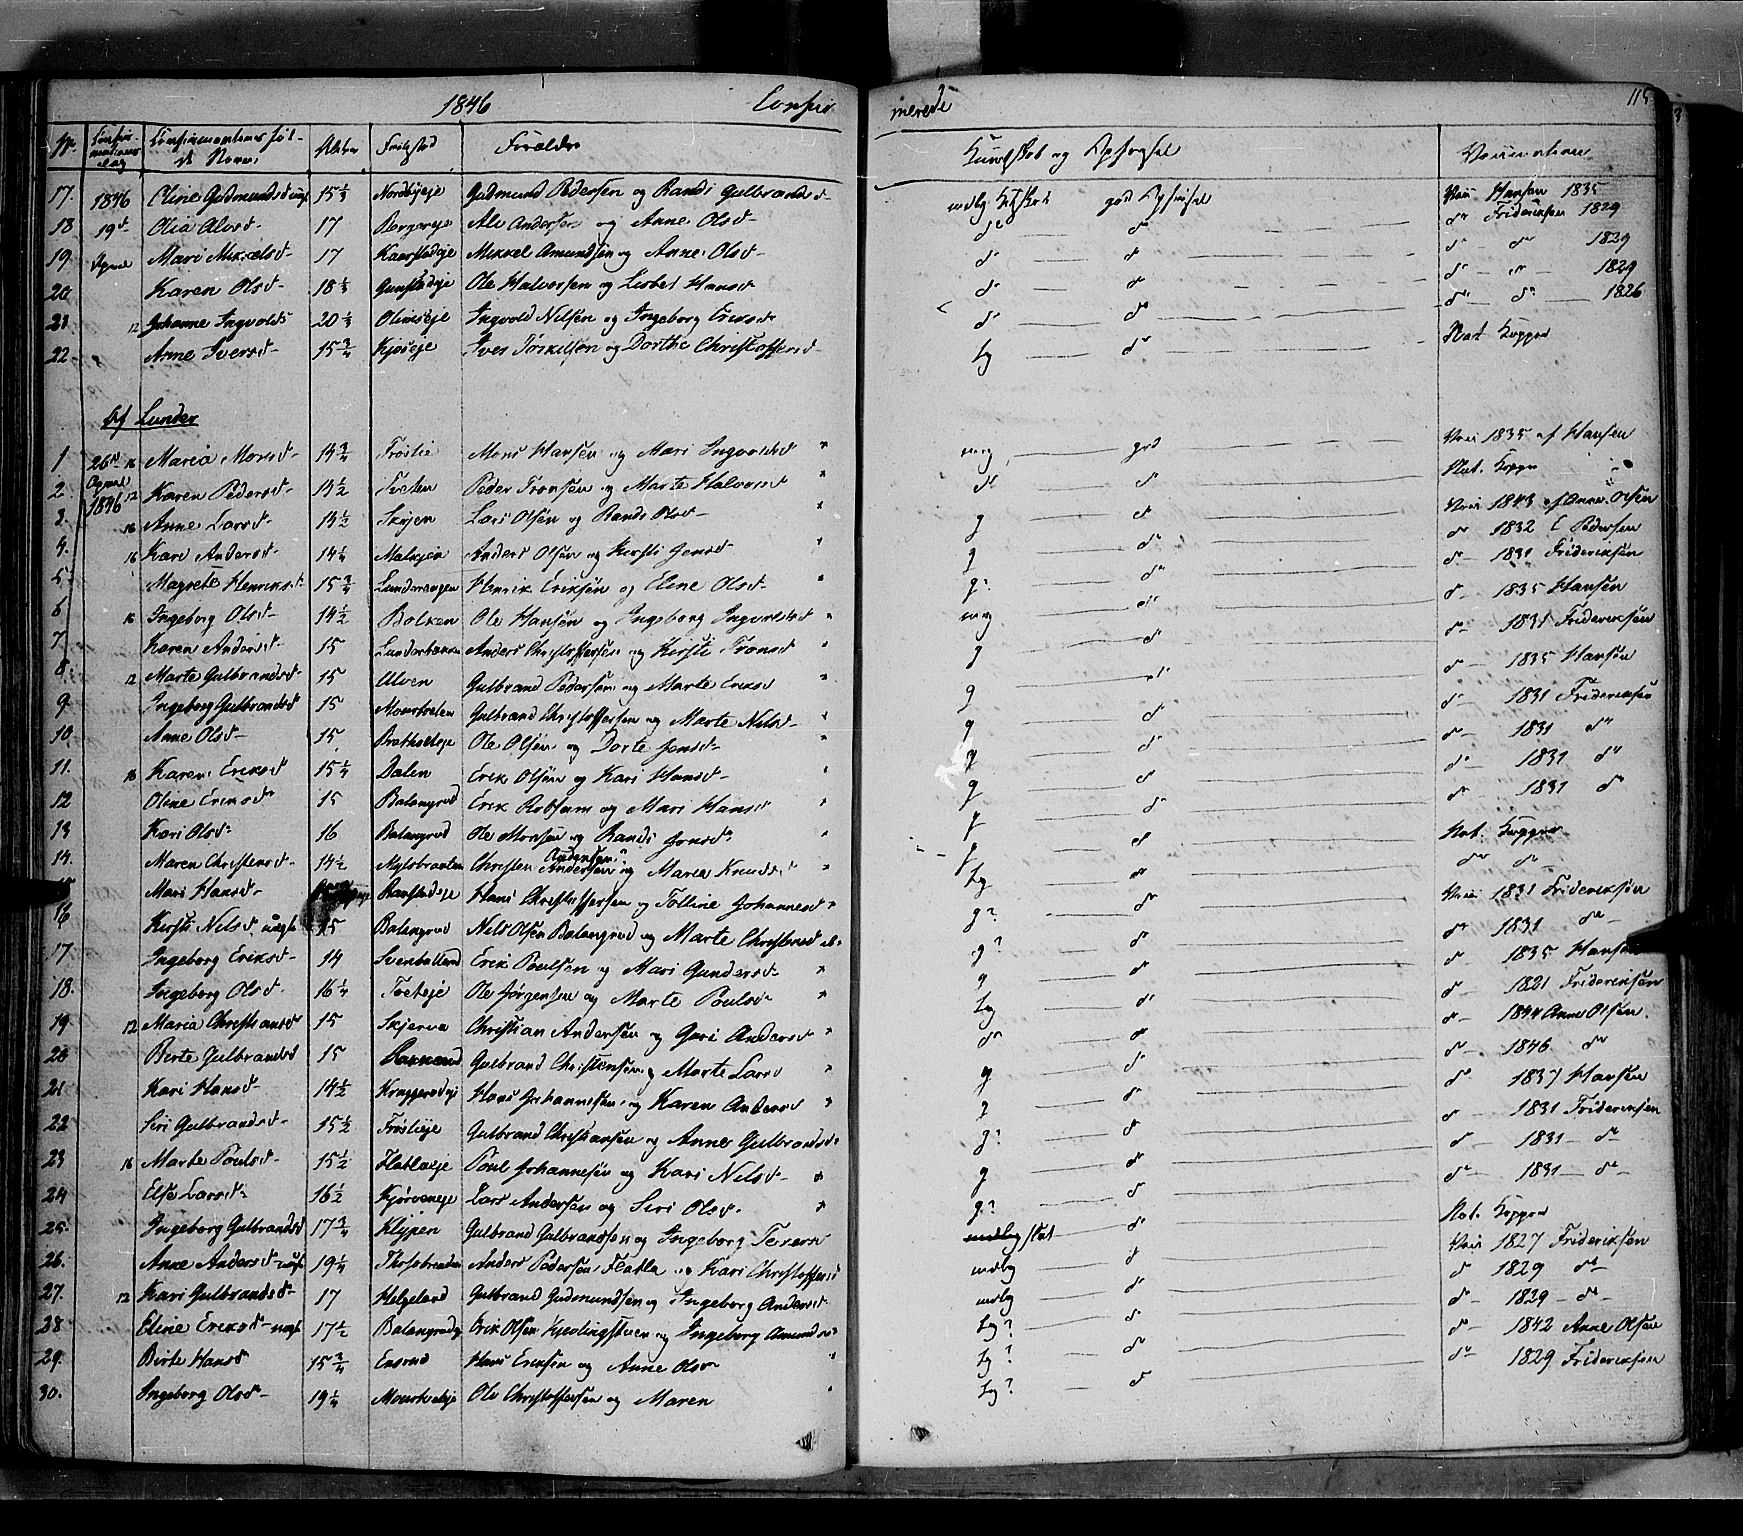 1846 Confir-
merede 115
No. Confirmations dag Confirmanternes fulde Navn Alder Fødested Forældre Kundskab og Opførsel Vaccination
17. 1846 Eline Gudmundsd uægt 15 1/2 Nordbyeje Gudmund Pedersen og Randi Gulbrandsd- mdlg. Kdskab god Opførsel Vac: Hansen 1835
18 19de Olia Alvsd- 17 Alv Andersen og Anne Olsd- do do do Frideriksen 1829
19 April Mari Mikkelsd- 17 Mikkel Amundsen og Anne Olsd- do do do - do 1829
20 Karen Olsd- 18 1/3 Ole Halvorsen og Lisbet Hansd do do do - do - 1829
21 12 Johanne Ingvolds 20 1/3 Olimseje Ingvold Nilsen og Ingeborg Eriksd do do do - do - 1826
22 Anne Iversd- 15 3/4 Kjøseje Iver Torkilsen og Dorthe Christoffersd- tg do Nat. Kopper
Af Lunder
1 26de 16 Maria Monsd- 14 3/4 Frøslie Mons Hansen og Mari Ingvoldsd " mg god Vac: 1835 af Hansen
2. April 12 Karen Pedersd- 14 1/2 Tveten Peder Tronsen og Marte Halvorsd " do do Nat. Kopper
3. 1846 16 Anne Larsd- 14 1/2 Lars Olsen og Randi Olsd- " g do Vac: 1843 af Anne Olsen
4. 16 Kari Andersd- 14 1/4 Anders Olsen og Kirsti Jensd- " g do do 1832 C Pedersen
5 Magrete Henriksd- 15 3/4 Henrik Eriksen og Eline Olsd- " g? do do- 1831 Frideriksen
6 16 Ingeborg Olsd- 14 1/2 Bolken Ole Hansen og Ingeborg Ingvoldsd " mg do do- 1835 Hansen
7. Karen Andersd- 15 Anders Christoffersen og Kirsti Tronsd " g do do- 1831 Frideriksen
8. 12 Marte Gulbrandsd- 15 Ulven Gulbrand Pedersen og Marte Eriksd " g do do- 1835 Hansen
9 Ingeborg Gulbrandsd 15 Gulbrand Christoffersen og Marte Nilsd- " g do do- 1831 Frideriksen
10. Anne Olsd- 15 Ole Olsen og Dorte Jensd- " g do do- 1831 do
11. 16 Karen Eriksd 15 1/4 Dalen Erik Olsen og Kari Hansd- " g do do- 1831 do
12 Oline Eriksd- 15 Balangrud Erik Robsum og Mari Hansd " g do do 1831 do
13 Kari Olsd- 16 Balangrud Ole Monsen og Randi Jonsd- " g do Nat. Kopper
14. Maren Christensd- 14 1/2 Christen Andersen og Maria Knudsd " tg do do do
15 Mari Hansd- Hans Christoffersen og Tolline Johannesd " g? do Vac: 1831 Frideriksen
16 Kirsti Nilsd. uægte 15 Balangrud Nils Olsen Balangrud og Marte Christensd g? do do 1831 do
17 Ingeborg Eriksd- 14 Erik Poulsen og Mari Gundersd- " g do do 1835 Hansen
18. Ingeborg Olsd- 16 1/4 Ole Jørgensen og Marte Poulsd- " tg do do- 1821 Frideriksen
19 12 Maria Christiansd 15 Skjerva Christian Andersen og Guri Andersd " do do do- 1844 Anne Olsen.
20 Birte Gulbrandsd 15 Gulbrand Christensen og Marte Larsd " g do do- 1846 do
21 Kari Hansd- 14 1/2 Hans Johannesen og Karen Andersd " g do do 1837 Hansen
22 Siri Gulbrandsd- 15 1/2 Frøslieje Gulbrand Christiansen og Anne Gulbrandsd " g? do do- 1831 Frideriksen
23 16 Marte Poulsd- 15 1/2 Flatlaeje Poul Johannesen og Kari Nilsd- " g do do- 1831 - do
24 Else Larsd- 16 1/2 Lars Andersen og Siri Olsd- " g? do do- 1831 - do-
25. Ingeborg Gulbrandsd 17 3/4 Klypen Gulbrand Gulbrandsen og Ingeborg do Nat. Kopper
26. Anne Andersd- uægte 19 1/4 Anders Pedersen Flatla og Kari Christoffersd mdlg do Vac: 1827 Frideriksen
27. 12 Kari Gulbrandsd- 17 Helgeland Gulbrand Gudmundsen og Ingeborg Andersd- mdlg do do 1829 do
28 Eline Eriksd- uægt 17 1/2 Erik Olsen og Ingeborg Amundsd " tg? do do- 1829 - do-
29. Birte Hansd 15 3/4 Ensrud Hans Eriksen og Anne Olsd " tg? do do- 1842 Anne Olsen
30. Ingeborg Olsd- 19 1/4 Ole Christoffersen og Maren " tg? do do 1829 Frideriksen